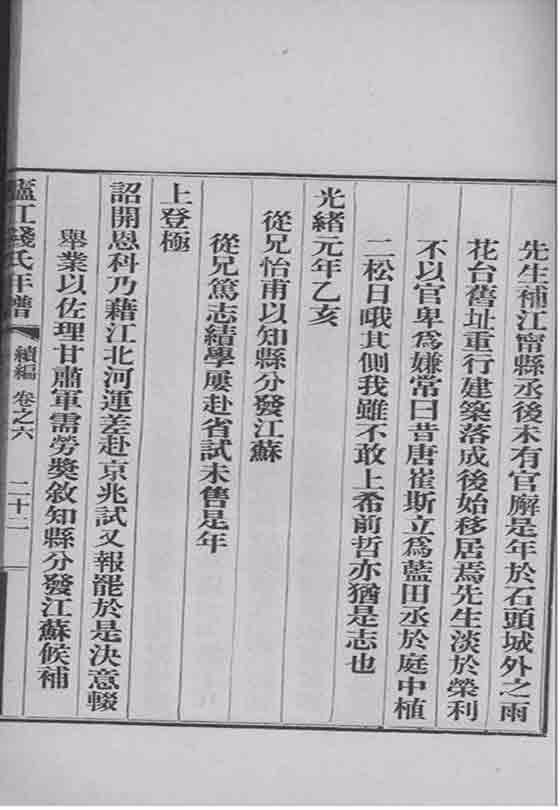 先生補江甯縣丞後未有官廨是年於石頭城外之雨
花台舊址重行建築落成後始移居焉先生淡於榮利
不以官卑爲嫌常曰昔唐崔斯立爲藍田丞於庭中植
二松日哦其側我雖不敢上希前哲亦猶是志也
光緒元年乙亥
從兄怡甫以知縣分發江蘇
從兄篤志績學屢赴省試未售是年
上登極
詔開恩科乃藉江北河運差赴京兆試又報罷於是決意輟
舉業以佐理甘肅軍需勞奬敘知縣分發江蘇候補
廬江錢氏年譜 續編 卷之六 二十二